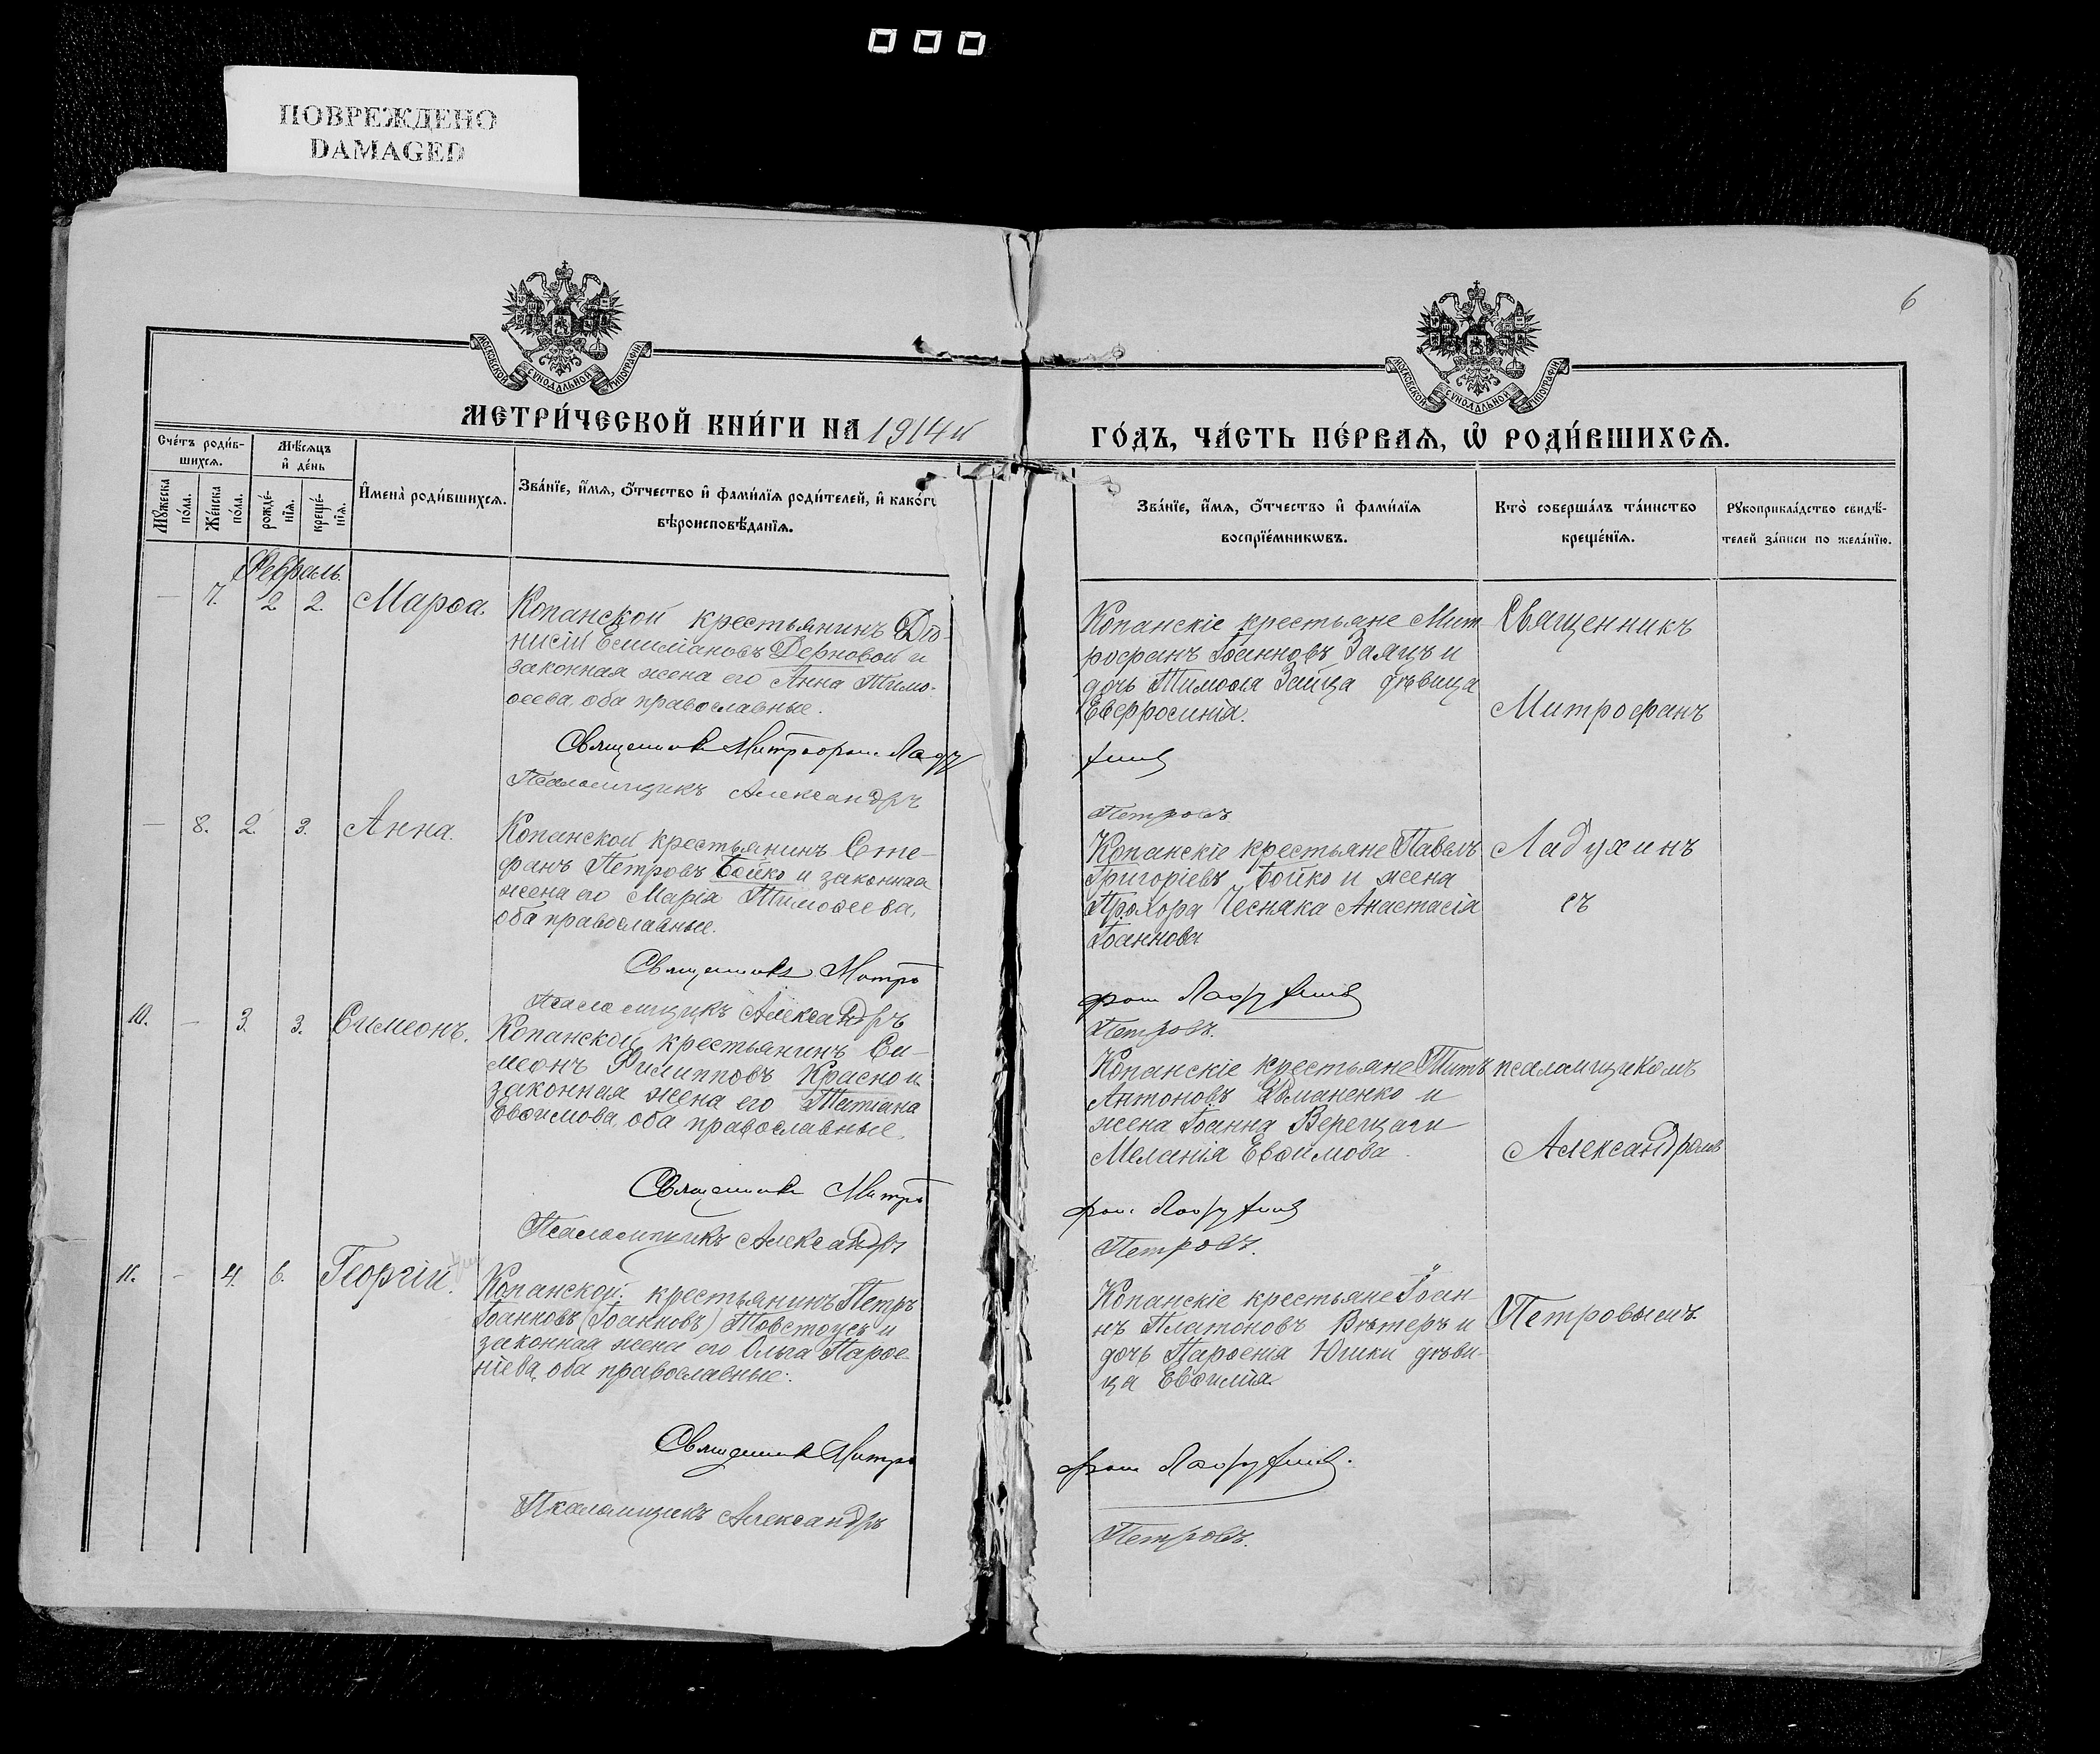 ПОВРЕЖДЕНО
DAMAGED
6
МОСКОВСКОЙ СѴНОДАЛЬНОЙ ТИПОГРАФІИ
МОСКОВСКОЙ СѴНОДАЛЬНОЙ ТИПОГРАФІИ
МЕТРИ́ЧЕСКОЙ КНИ́ГИ НА 1914й
ГО́ДЪ, ЧА́СТЬ ПЕ́РВАѦ, Ѡ҆ РОДИ́ВШИХСѦ.
Сче́тъ роди́в-
шихсѧ.
Мѣ́сѧцъ
и҆ де́нь
Мꙋ́жеска
по́ла.
Же́нска
по́ла.
рожде́-
нїѧ.
креще́-
нїѧ.
И҆мена̀ роди́вшихсѧ.
Зва́нїе, и҆́мѧ, ѻ҆́тчество и҆ фами́лїѧ роди́телей, и҆ како́гѡ
вѣроисповѣ́данїѧ.
Зва́нїе, и҆́мѧ, ѻ҆́тчество и҆ фами́лїѧ
воспрїе́мникѡвъ.
Кто̀ соверша́лъ та́инство
креще́нїѧ.
Рꙋкоприкла́дство свидѣ́-
телей за́писи по жела́нїю.
Февраль.
— 7. 2 2. Марѳа.
Копанской крестьянинъ Діо-
нисій Емиліановъ Дерновой и
законная жена его Анна Тимо-
ѳеева, оба православные.
Священникъ Митрофан Ладу
Псаломщикъ Александръ
Копанскіе крестьяне Мит-
рофанъ Іоанновъ Заяцъ и
дочь Тимоѳея Зайца дѣвица
Евфросинія.
хинъ
Петровъ
Священникъ
Митрофанъ
— 8. 2. 3. Анна.
Копанской крестьянинъ Сте-
фанъ Петровъ Бойко и законная
жена его Марія Тимоѳеева,
оба православные.
Священникъ Митро
Псаломщикъ Александръ
Копанскіе крестьяне Павелъ
Григоріевъ Бойко и жена
Прохора Чесняка Анастасія
Іоаннова
фан Ладухинъ
Петровъ.
Ладухинъ
съ
10. — 3. 3. Симеонъ.
Копанской крестьянинъ Си-
меонъ Филипповъ Красно и
законная жена его Татіана
Евѳимова, оба православные.
Священникъ Митро
Псаломщикъ Александръ
Копанскіе крестьяне Титъ
Антоновъ Романенко и
жена Іоанна Верещаги
Меланія Евѳимова.
фан Ладухинъ
Петровъ.
псаломщикомъ
Александромъ
11. — 4. 6. Георгій.
Копанской крестьянинъ Петръ
Іоанновъ (Іоанновъ) Товстоусъ и
законная жена его Ольга Парѳе-
ніева, оба православные.
Священникъ Митро
Псаломщикъ Александръ
Копанскіе крестьяне Іоан-
нъ Платоновъ Вѣтеръ и
дочь Парѳенія Юшки дѣви-
ца Евѳимія.
фан Ладухинъ.
Петровъ.
Петровымъ.